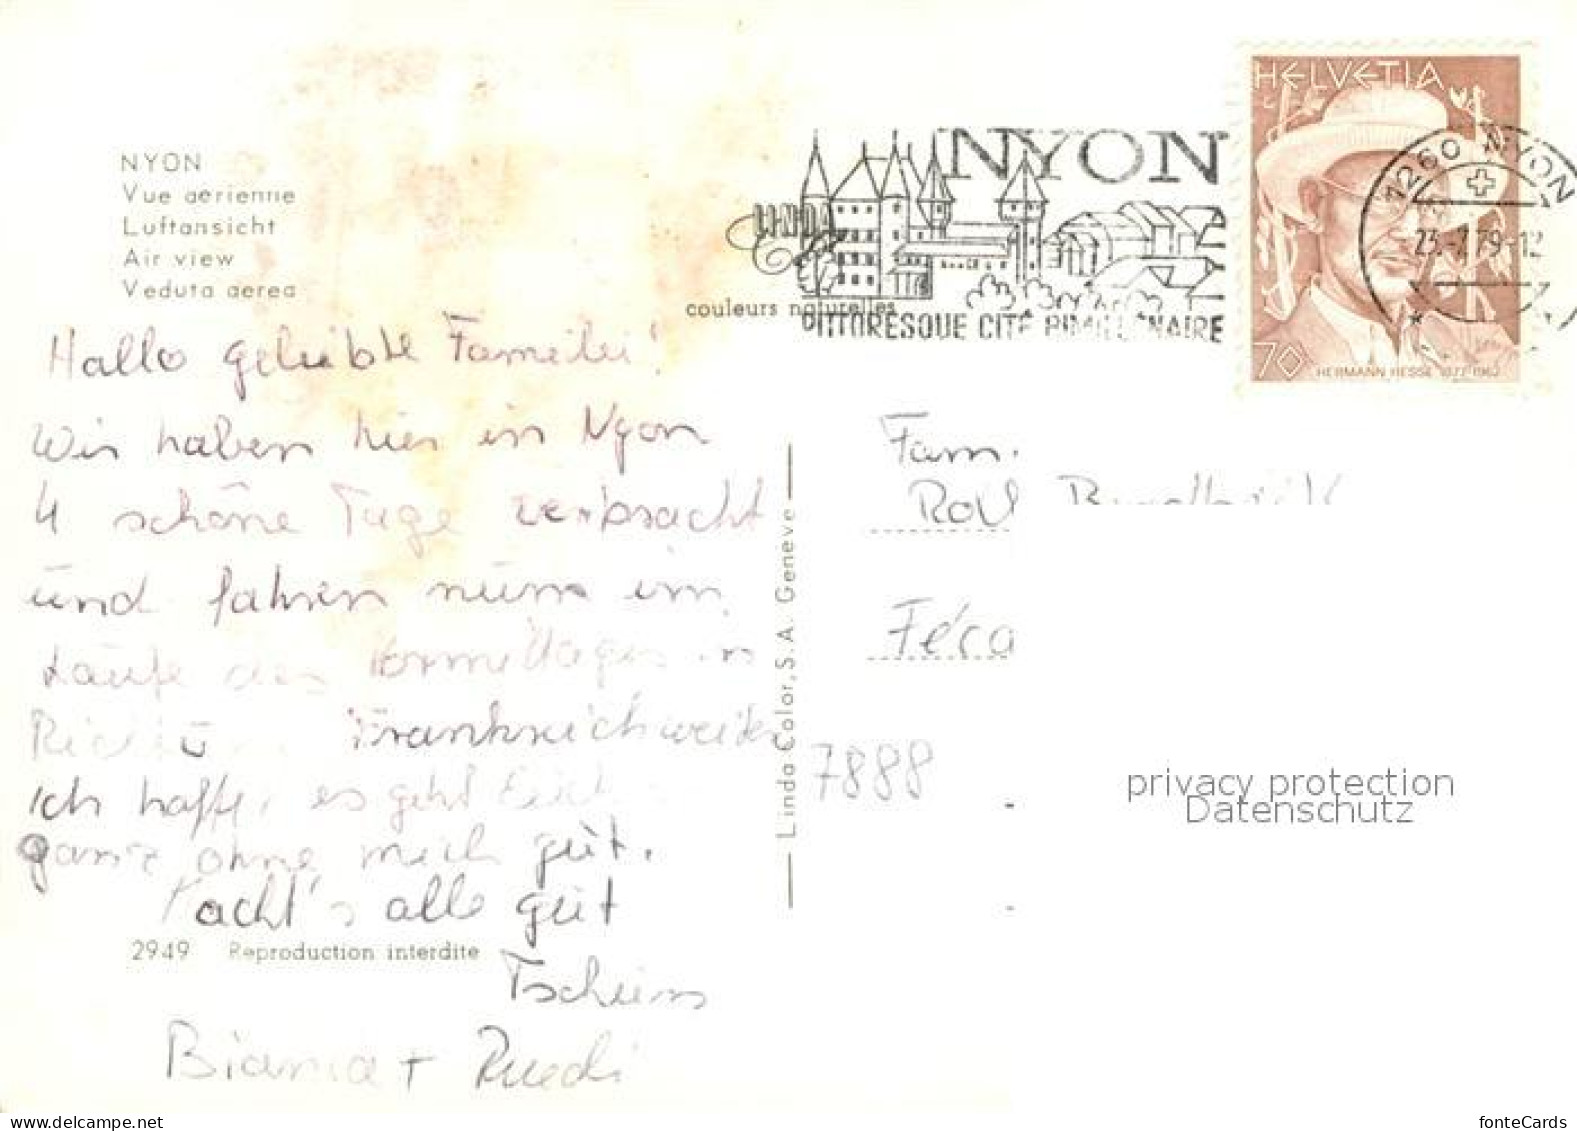 HELVETIA
NYON
1260 NYON
NYON
Vue aérienne
Luftansicht
Air view
Veduta aerea
LINDA
23.-7.79-12
couleurs naturelles
PITTORESQUE CITÉ BIMILLENAIRE
70 HERMANN HESSE 1877-1962
Hallo geliebte Familie!
Wir haben hier in Nyon
4 schöne Tage verbracht
und fahren nun im
Laufe des Vormittages in
Richtung Frankreich weiter
ich hoffe, es geht Euch
ganz ohne mich gut.
Macht's alle gut
2949 Reproduction interdite
Tschüss
Bianca + Ruedi
Linda Color, S.A. Genève
Fam.
Féca
7888
privacy protection
Datenschutz
fonteCards
www.delcampe.net